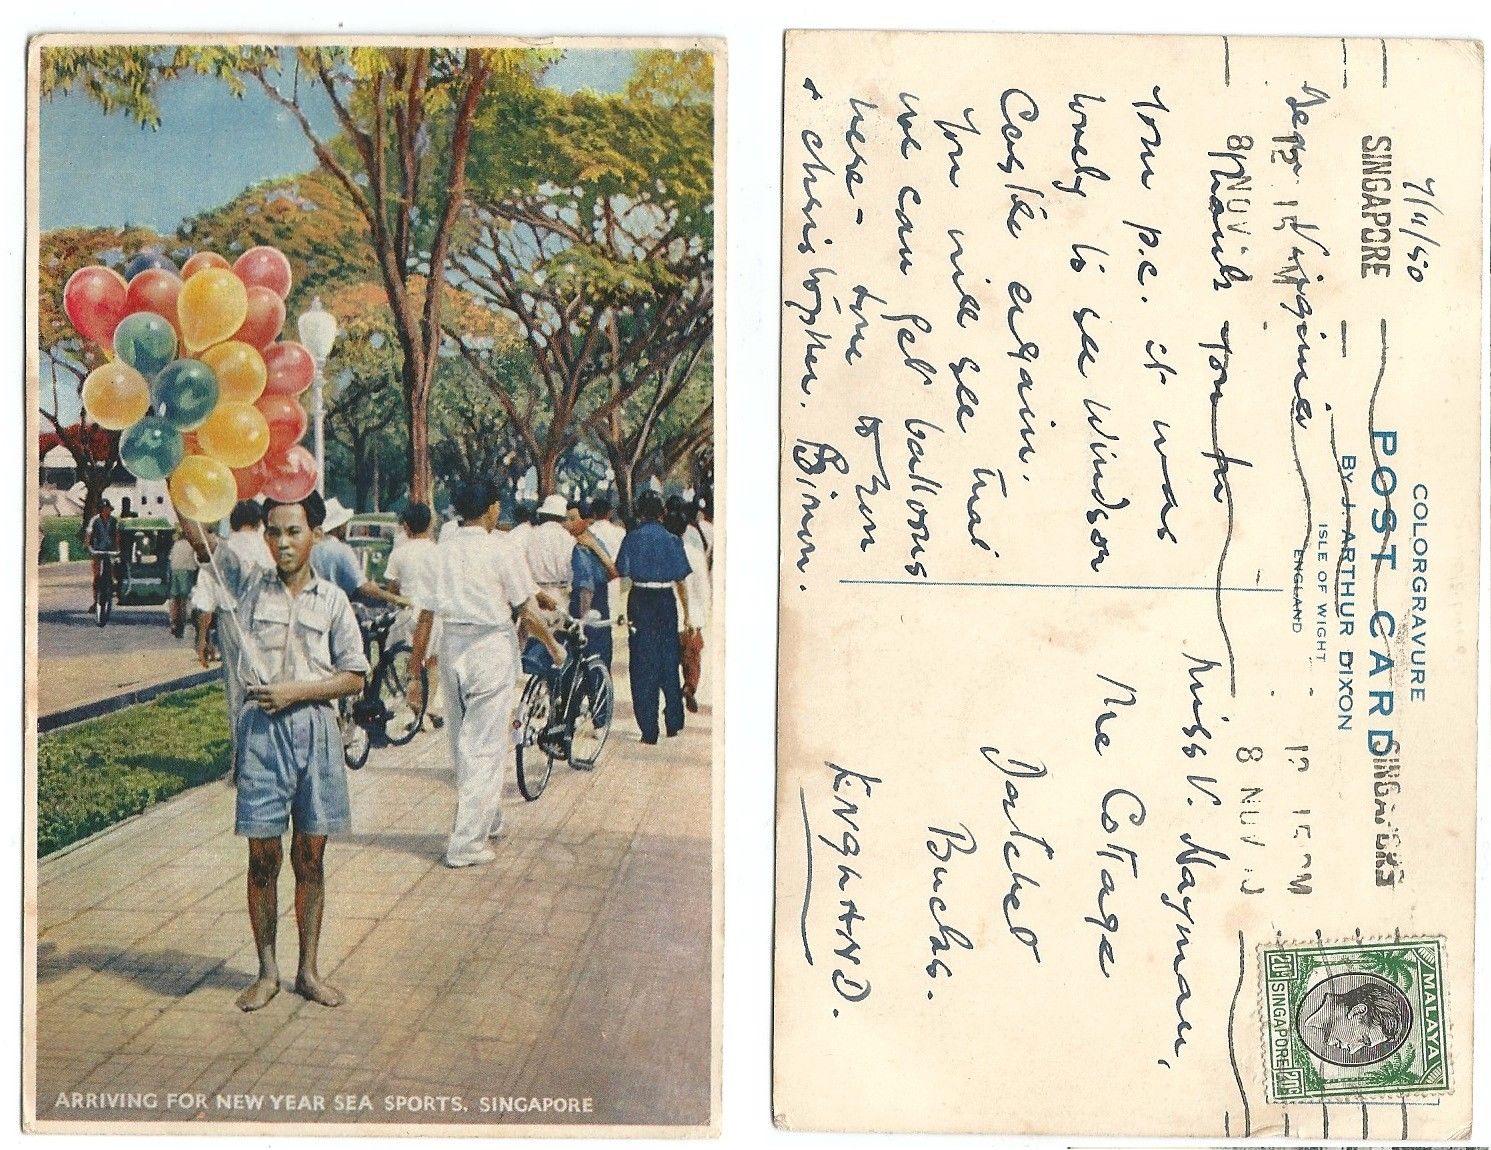 ARRIVING FOR NEW YEAR SEA SPORTS, SINGAPORE
COLORGRAVURE
POST CARD
BY J. ARTHUR DIXON
ISLE OF WIGHT
ENGLAND
SINGAPORE
12 15 PM
8 NOV
SINGAPORE
12 15 PM
8 NOV
MALAYA
20c SINGAPORE 20c
7/11/50
Dear Virginia
Thank you for
your p.c. it was
lovely to see Windsor
Castle again.
You will see that
we can get balloons
here - love to Zun
+ christopher.
Miss V. Hayman,
The Cottage
Datchet
Bucks.
ENGLAND.